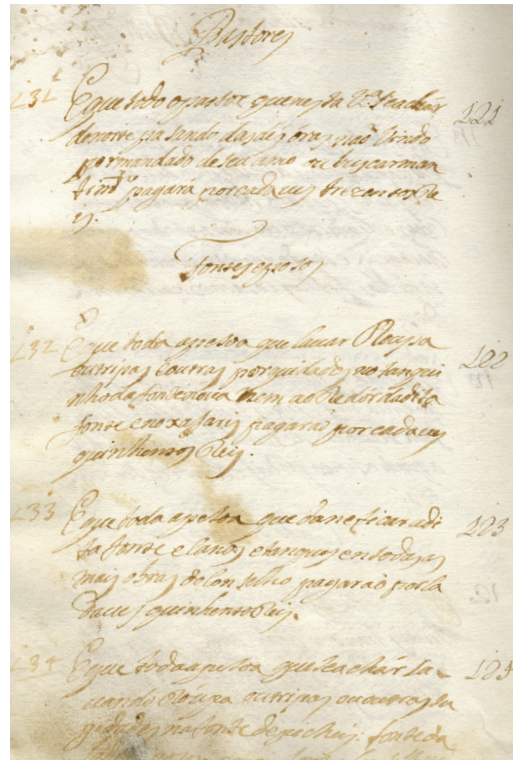 Pastores
131 E que todo o pastor que nesta Vª se achar 121
de noite pa sendo das dez oras não vindo
por mandado de seu amo ou buscar man
timtº pagará por cada ves trezentos Re
is.
Fontes e possos
132 E que toda a pesoa que lavar Roupa 100
outripas e outras porquidades no tanqui
nho da fonte nova nem ao Redor da dita
fonte e no xafaris pagará por cada ves
quinhentos Reis.
133 E que toda a pesoa que daneficar a di 103
ta fonte e canos e tanques e todas as
mais obras do Conselho pagará por ca
da ves quinhentos Reis.
134 E que toda a pesoa que se achar la 105
vando Roupa ou tripas ou outras su
gidades na fonte de picheis: fonte da